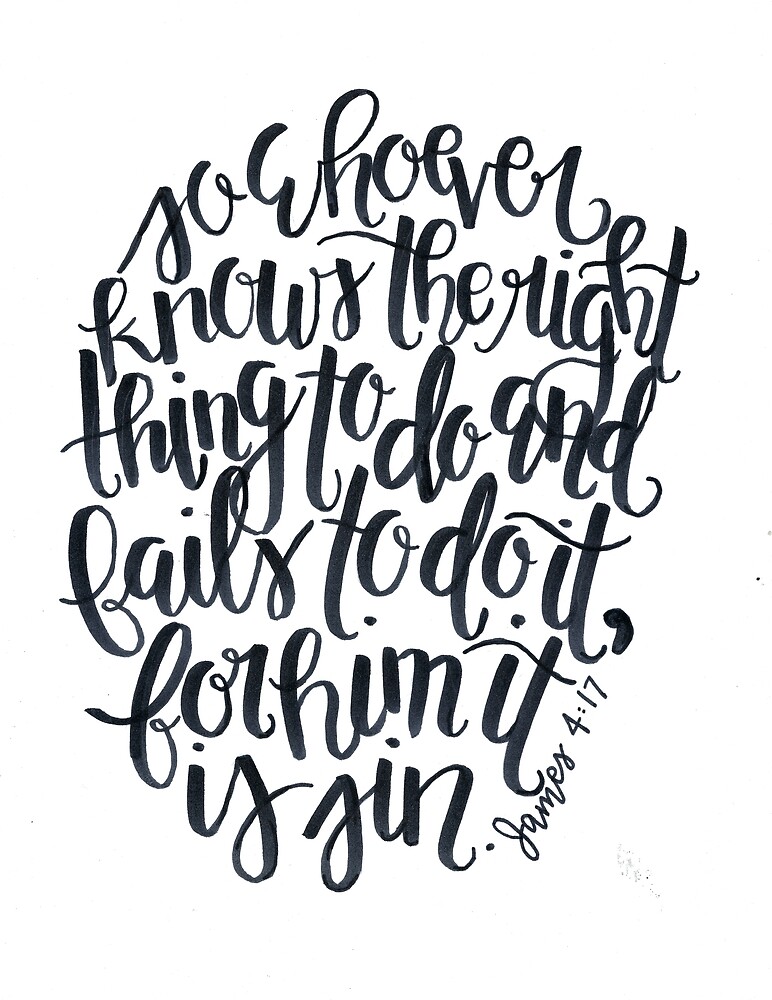 so whoever
knows the right
thing to do and
fails to do it,
for him it
is sin.
James 4:17